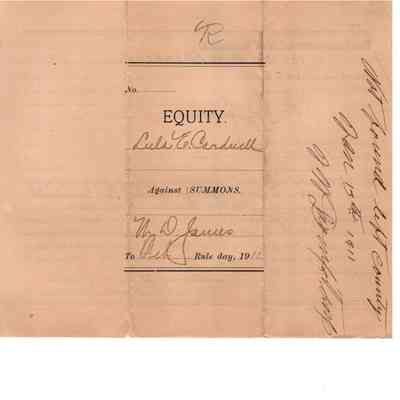 R
No.
EQUITY.
Lula E. Cardwell
Against } SUMMONS.
D. James
To Feb Rule day, 1911
Not found left county
Jan 1911